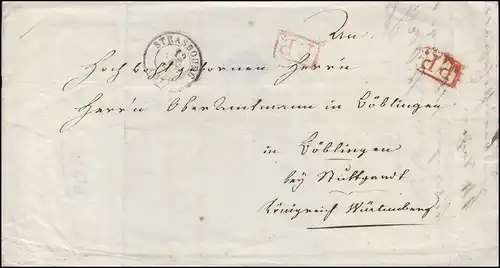 An
STRASBOURG
P.P.
P.P.
Hochwohlgebornen Herrn
Herrn Oberamtmann in Böblingen
in Böblingen
bey Stuttgardt
Königreich Würtemberg